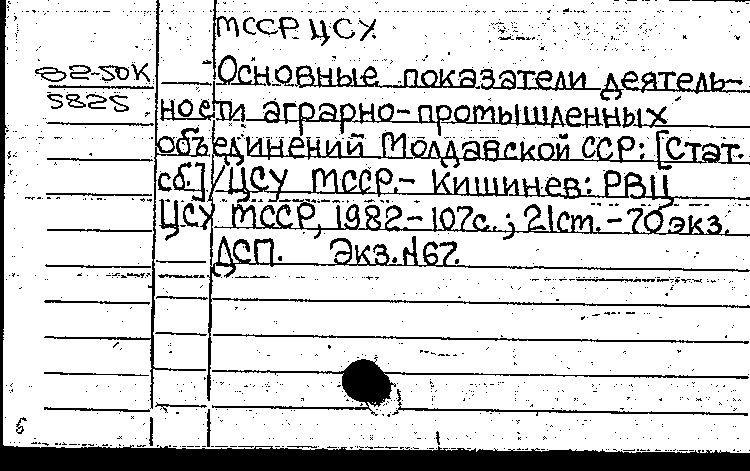 МССР. ЦСУ.
82-50К
5825
Основные показатели деятель-
ности аграрно-промышленных
объединений Молдавской ССР: [Стат.
сб.]/ЦСУ МССР.- Кишинев: РВЦ
ЦСУ МССР, 1982.-107с.; 21см.-70экз.
ДСП. Экз.№67.
6